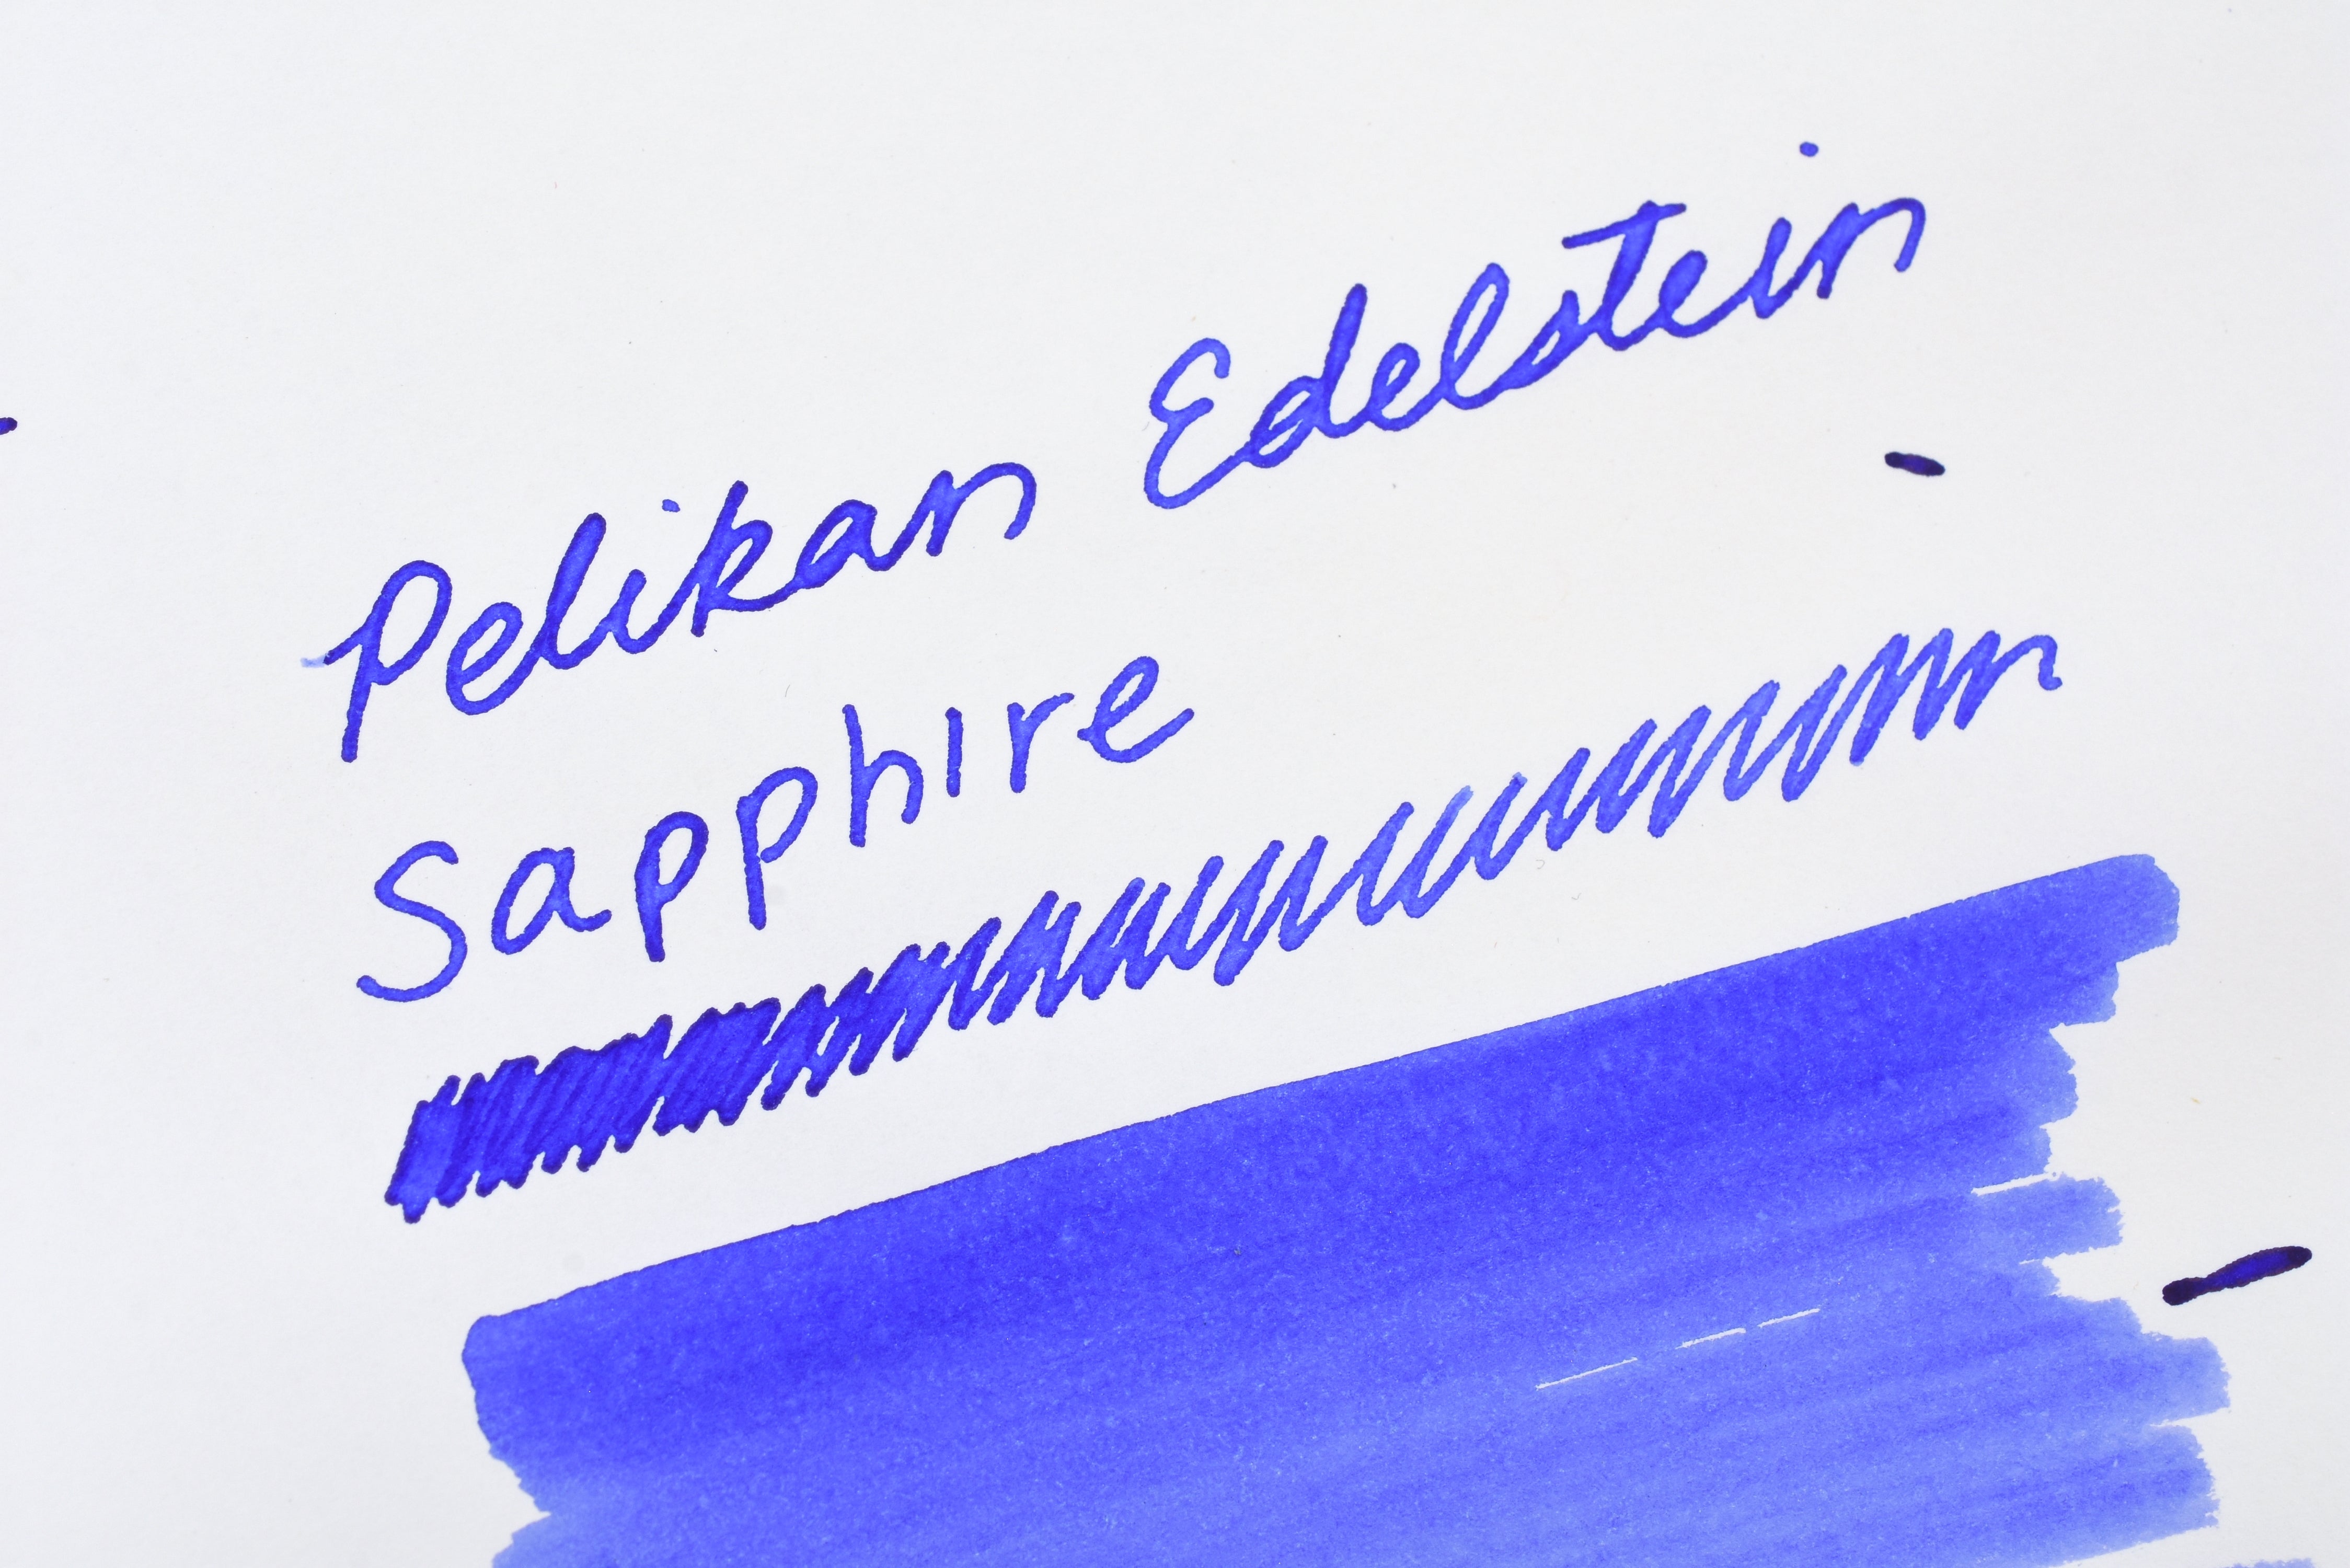 Pelikan Edelstein
Sapphire